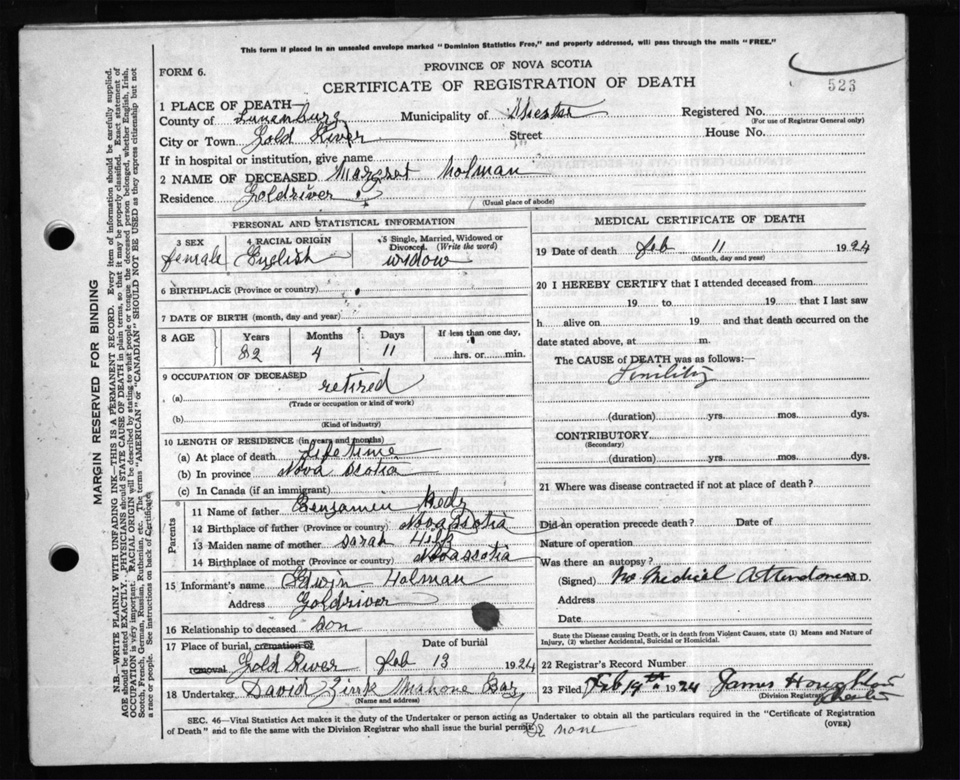 This form if placed in an unsealed envelope marked "Dominion Statistics Free," and properly addressed, will pass through the mails "FREE."
PROVINCE OF NOVA SCOTIA
FORM 6.
CERTIFICATE OF REGISTRATION OF DEATH
523
1 PLACE OF DEATH
County of Lunenburg Municipality of Chester Registered No.
(For use of Registrar General only)
City or Town Gold River Street House No.
If in hospital or institution, give name
2 NAME OF DECEASED Margret Holman
Residence Goldriver
(Usual place of abode)
PERSONAL AND STATISTICAL INFORMATION
3 SEX 4 RACIAL ORIGIN 5 Single, Married, Widowed or Divorced. (Write the word)
female English widow
6 BIRTHPLACE (Province or country)
7 DATE OF BIRTH (month, day and year)
8 AGE Years Months Days If less than one day,
82 4 11 hrs. or min.
9 OCCUPATION OF DECEASED
(a) retired
(Trade or occupation or kind of work)
(b)
(Kind of industry)
10 LENGTH OF RESIDENCE (in years and months)
(a) At place of death life time
(b) In province Nova Scotia
(c) In Canada (if an immigrant)
Parents
11 Name of father Benjamin
12 Birthplace of father (Province or country) Nova Scotia
13 Maiden name of mother Sarah
14 Birthplace of mother (Province or country) Novascotia
15 Informant's name Edwin Holman
Address Goldriver
16 Relationship to deceased Son
17 Place of burial, cremation or removal Gold River Date of burial feb 13 1924
18 Undertaker David Zink Mahone Bay
(Name and address)
MEDICAL CERTIFICATE OF DEATH
19 Date of death feb 11 1924
(Month, day and year)
20 I HEREBY CERTIFY that I attended deceased from
19 to 19 that I last saw
h alive on 19 and that death occurred on the
date stated above, at m.
The CAUSE of DEATH was as follows:—
Senility
(duration) yrs. mos. dys.
CONTRIBUTORY
(Secondary)
(duration) yrs. mos. dys.
21 Where was disease contracted if not at place of death?
Did an operation precede death? Date of
Nature of operation
Was there an autopsy?
(Signed) No Medical Attendance M.D.
Address
Date
State the Disease causing Death, or in death from Violent Causes, state (1) Means and Nature of Injury, (2) whether Accidental, Suicidal or Homicidal.
22 Registrar's Record Number
23 Filed Feb 19th 1924 James
(Division Registrar) Chester
SEC. 46—Vital Statistics Act makes it the duty of the Undertaker or person acting as Undertaker to obtain all the particulars required in the "Certificate of Registration
of Death" and to file the same with the Division Registrar who shall issue the burial permit. none
(OVER)
MARGIN RESERVED FOR BINDING
N.B.—WRITE PLAINLY WITH UNFADING INK—THIS IS A PERMANENT RECORD. Every item of information should be carefully supplied.
AGE should be stated EXACTLY. PHYSICIANS should STATE CAUSE OF DEATH in plain terms, so that it may be properly classified. Exact statement of
OCCUPATION is very important. RACIAL ORIGIN will be described by stating to what people or tongue the deceased person belonged, whether English, Irish,
Scotch, French, German, Russian, Ruthenian, etc. The terms "AMERICAN" or "CANADIAN" SHOULD NOT BE USED as they express citizenship but not
a race or people. See instructions on back of Certificate.